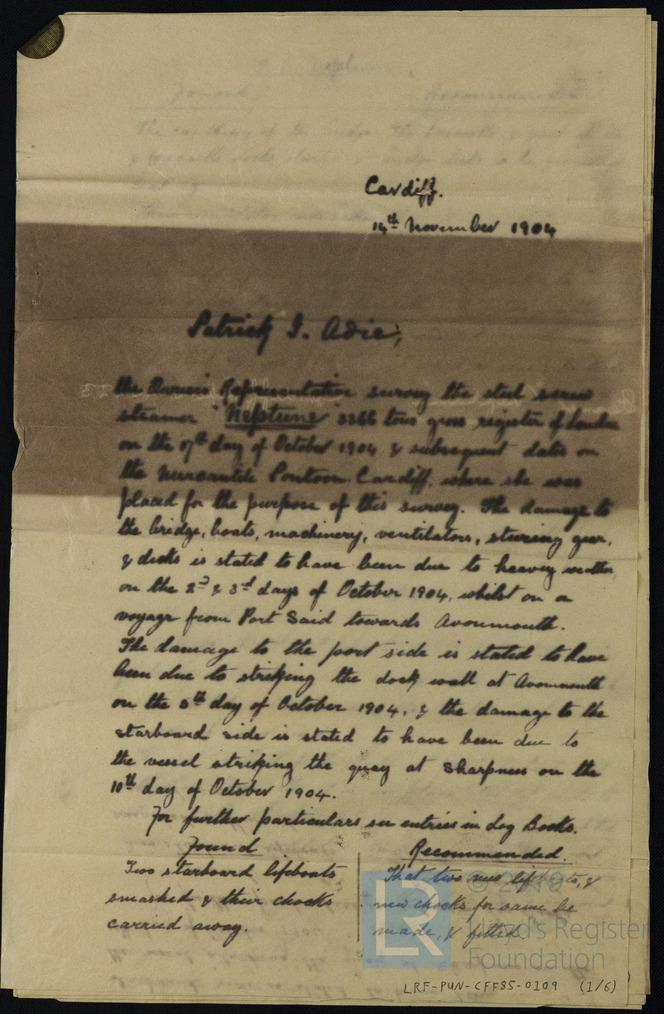 Cardiff.
14th November 1904
Patrick I. Adie,
the Owners Representative survey the steel screw
steamer "Neptune" 3366 tons gross register of London
on the 17th day of October 1904 & subsequent dates on
the Mercantile Pontoon Cardiff, where she was
placed for the purpose of this survey. The damage to
the bridge, boats, machinery, ventilators, steering gear,
& decks is stated to have been due to heavy weather
on the 2nd & 3rd days of October 1904, whilst on a
voyage from Port Said towards Avonmouth.
The damage to the port side is stated to have
been due to striking the dock wall at Avonmouth
on the 8th day of October 1904, & the damage to the
starboard side is stated to have been due to
the vessel striking the quay at Sharpness on the
10th day of October 1904.
For further particulars see entries in Log Books.
Found
Two starboard lifeboats
smashed & their chocks
carried away.
Recommended.
That two new lifeboats, &
new chocks for same be
made, & fitted.
© 2019
Lloyd's Register
Foundation
LR
LRF-PUN-CFF85-0109 (1/6)